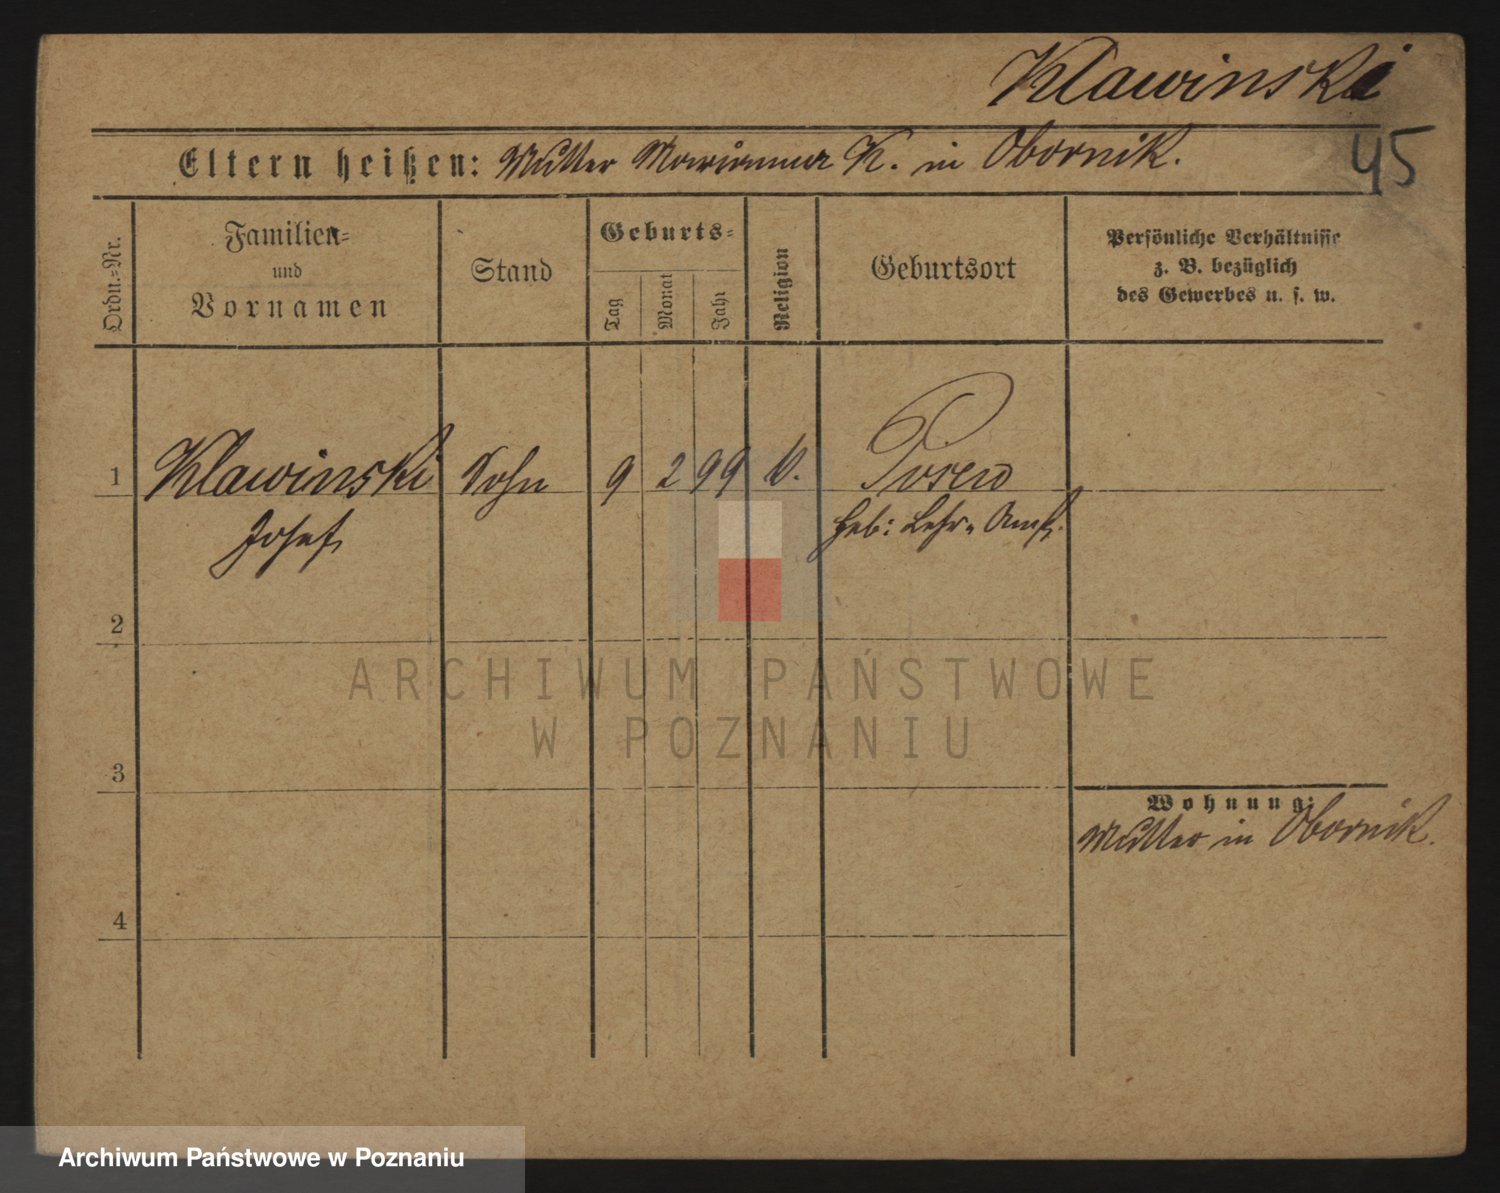 Klawinski
45
Eltern heißen: Mutter Marianna K. in Obornik.
Ordn.-Nr.
Familien-
und
Vornamen
Stand
Geburts-
Tag
Monat
Jahr
Religion
Geburtsort
Persönliche Verhältnisse
z. B. bezüglich
des Gewerbes u. s. w.
1 Klawinski Sohn 9 2 99 k. Posen
Josef Heb: Lehr-Anst.
2
3
4
Wohnung:
Mutter in Obornik.
ARCHIWUM PAŃSTWOWE
W POZNANIU
Archiwum Państwowe w Poznaniu